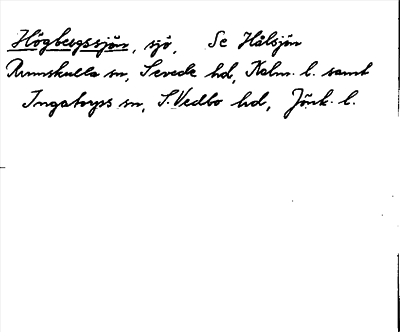 Högbergssjön, sjö, Se Hålsjön
Rumskulla sn, Sevede hd, Kalm. l. samt
Ingatorps sn, S. Vedbo hd, Jönk. l.